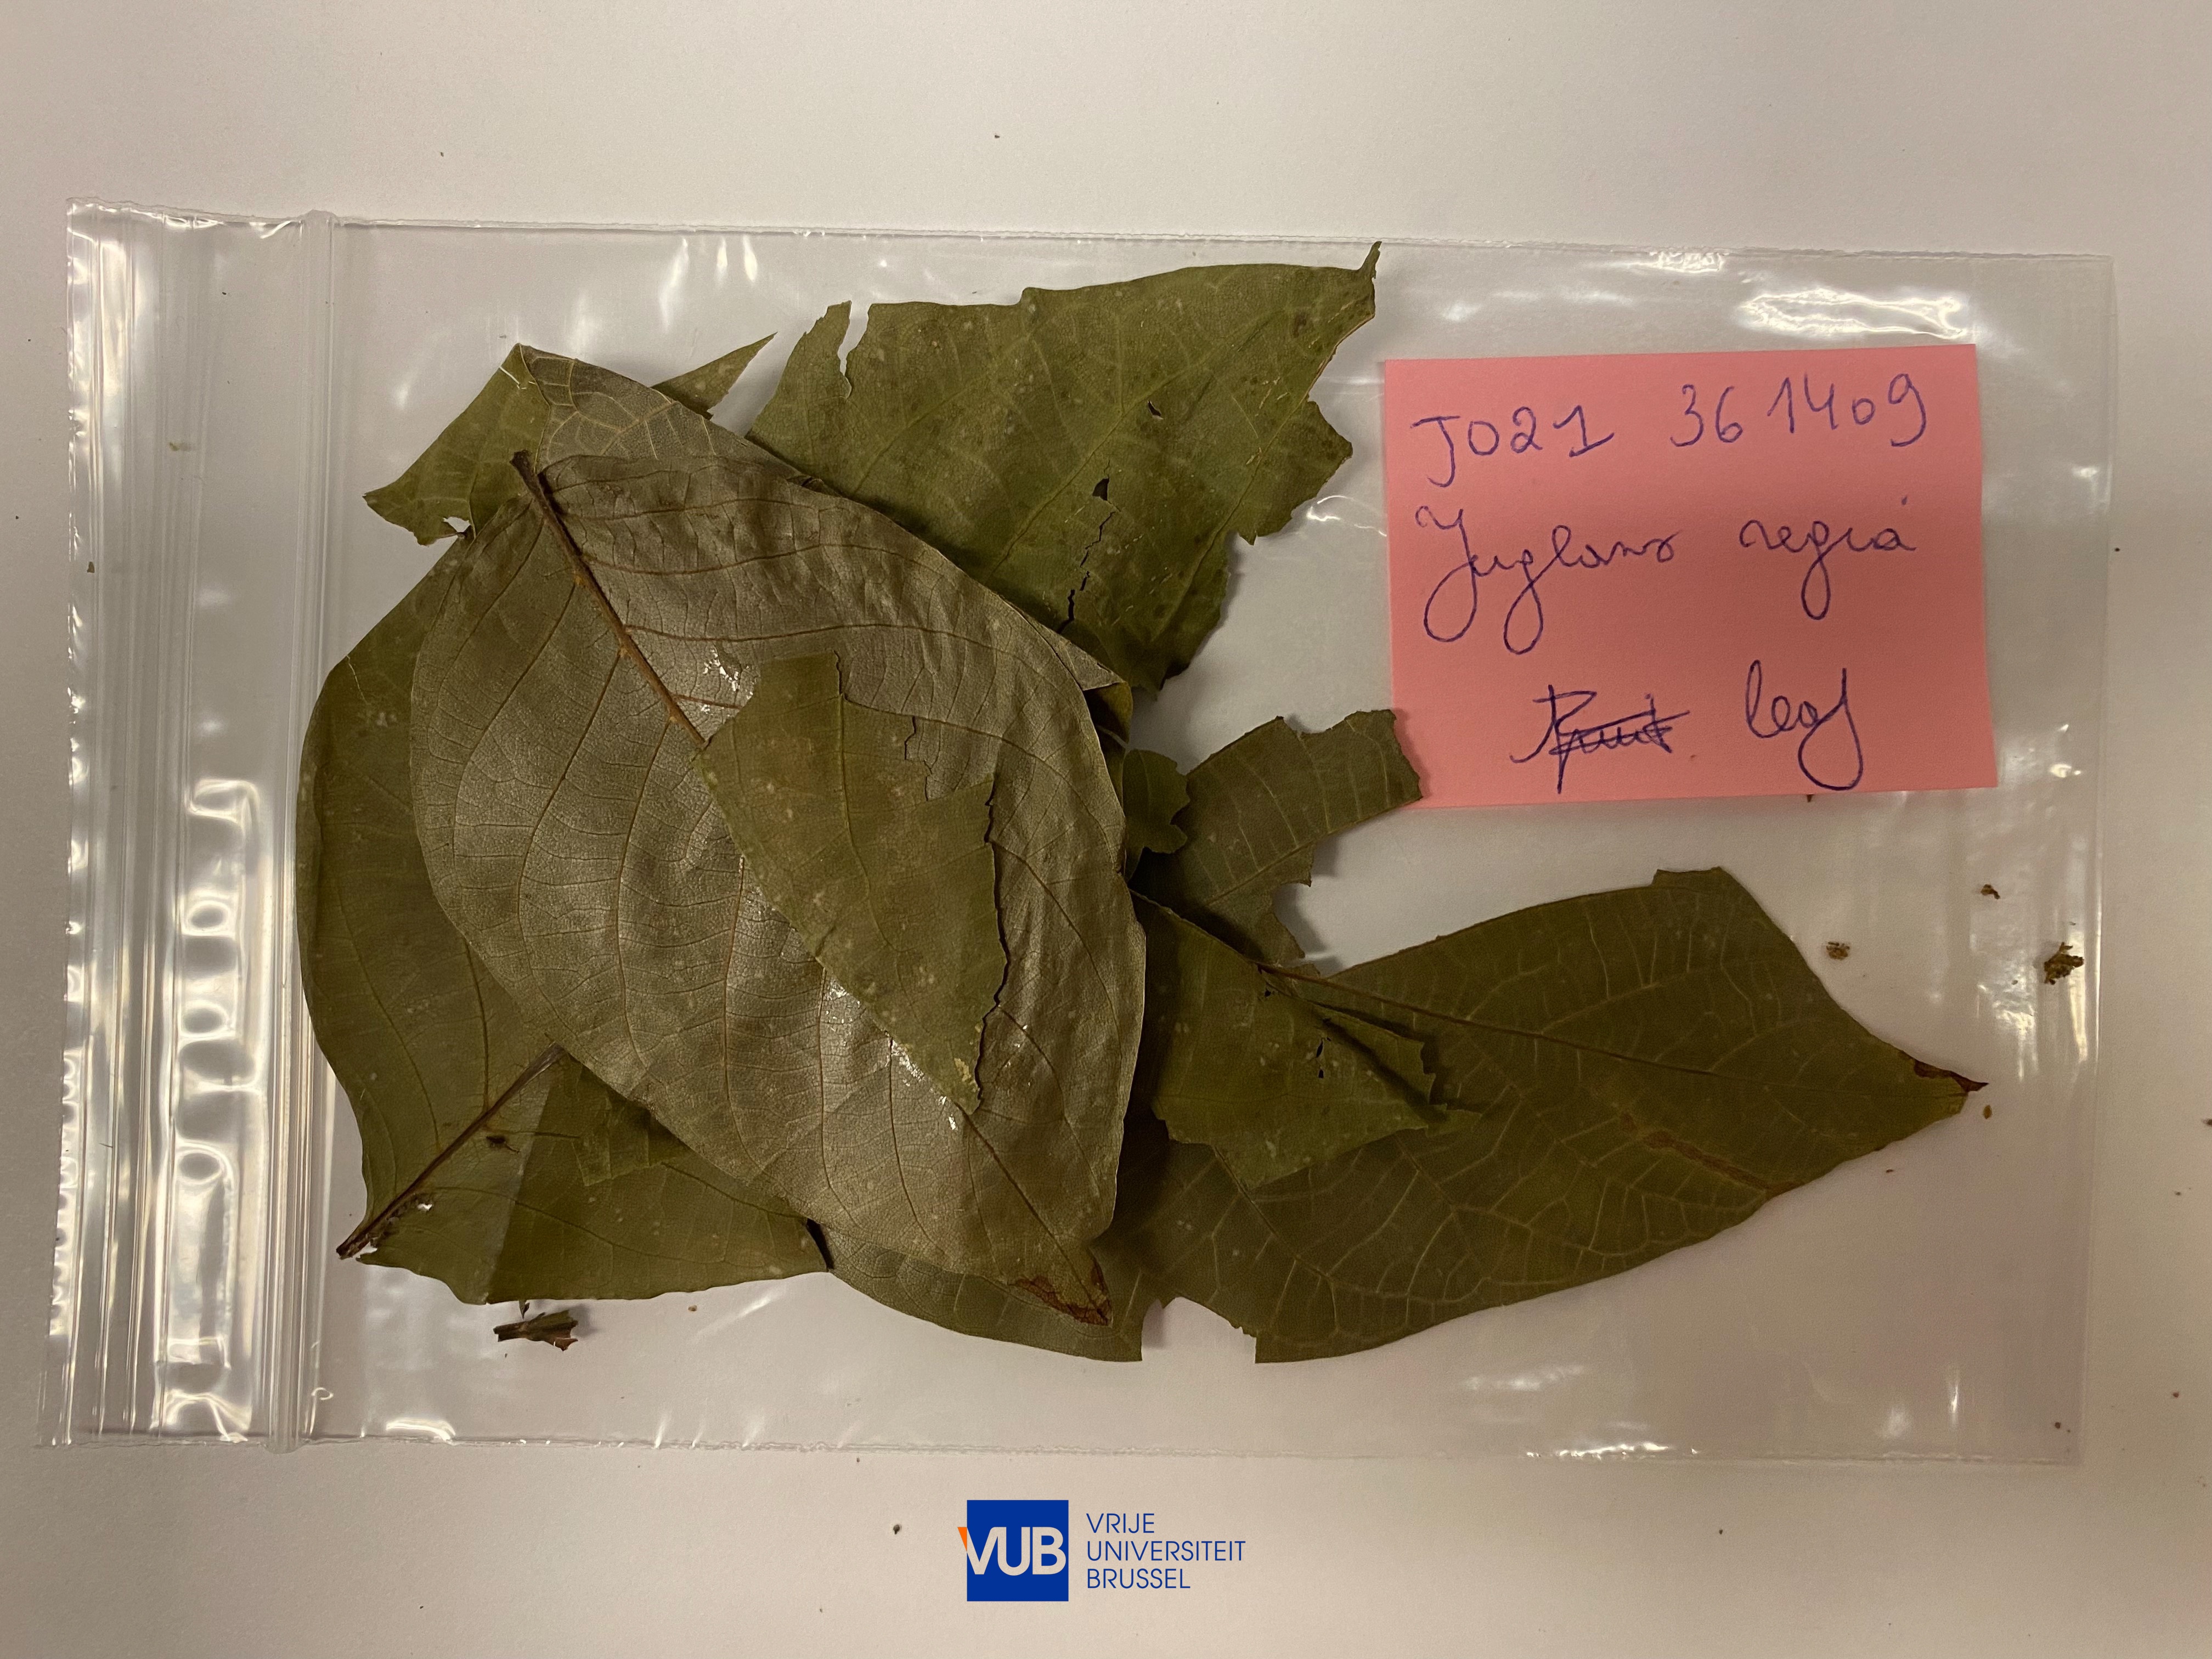 J021 361409
Juglans regia
leaf
VUB
VRIJE
UNIVERSITEIT
BRUSSEL